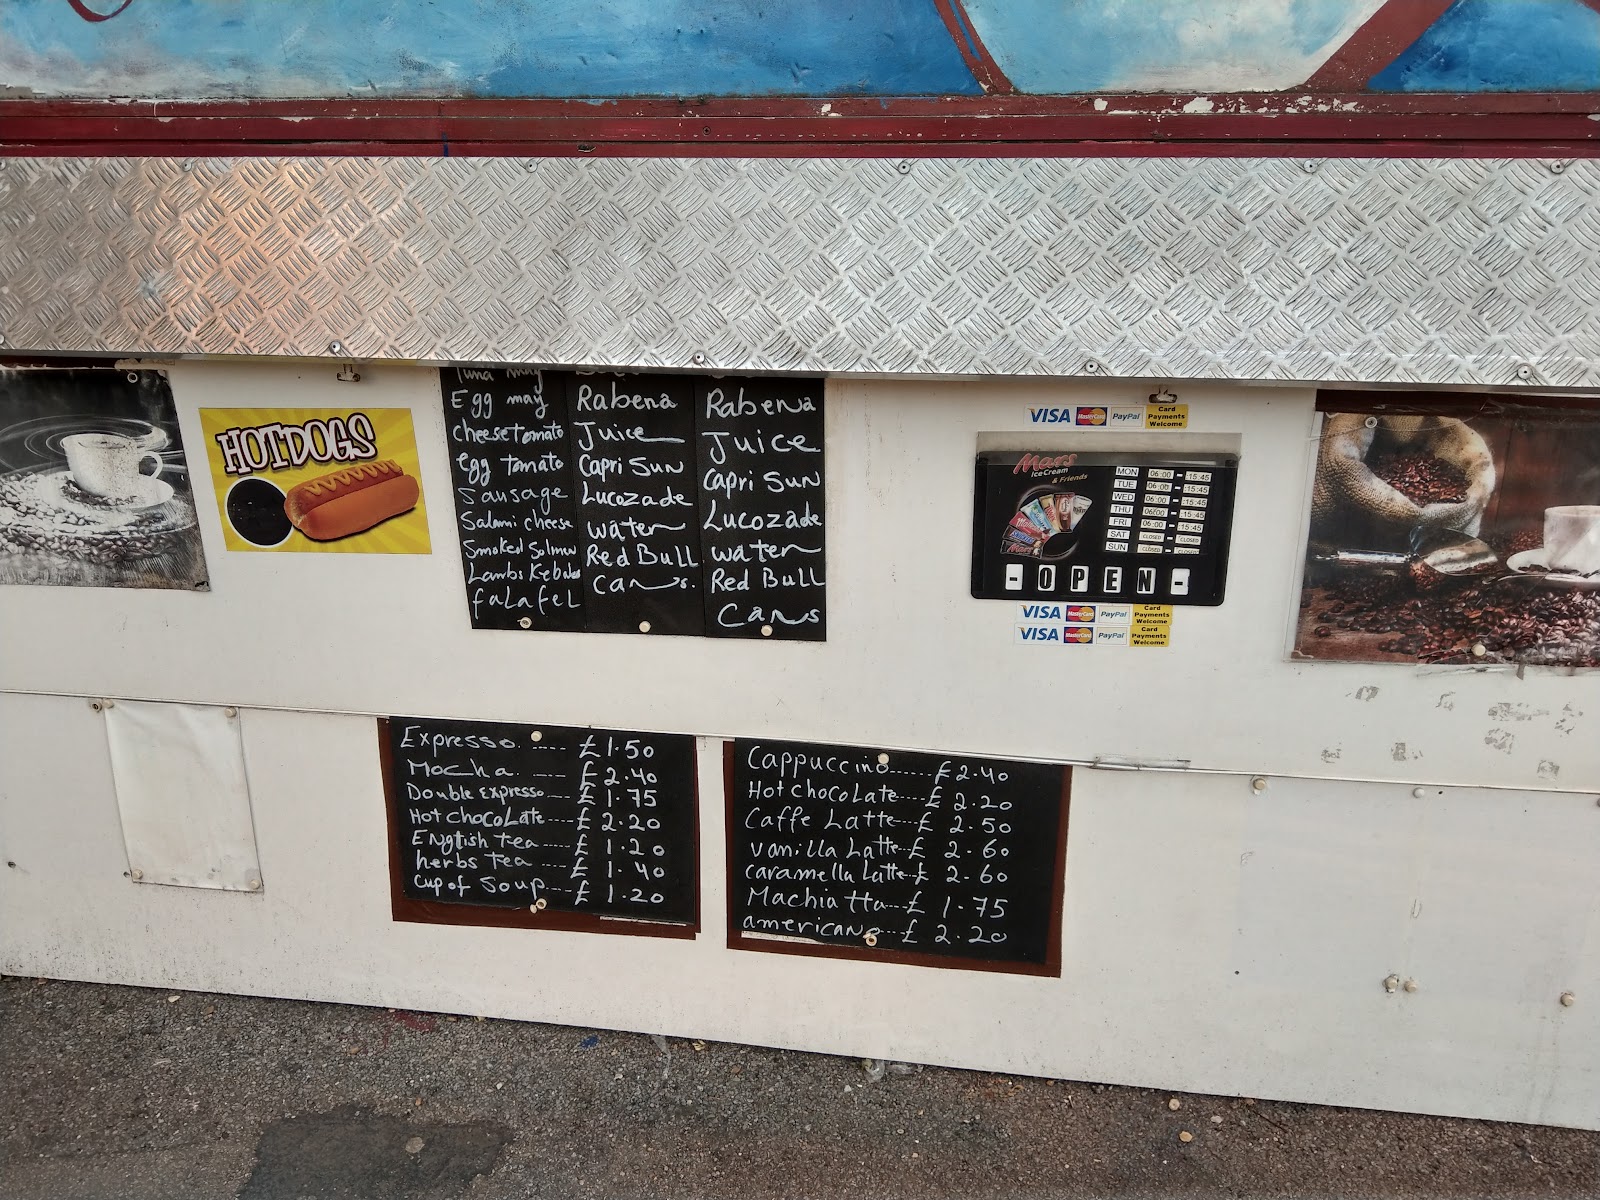 HOTDOGS
Tuna may
Egg may
cheese tomato
egg tomato
Sausage
Salami cheese
Smoked Salmon
Lambs Kebabs
falafel
Rabena
Juice
Capri Sun
Lucozade
water
Red Bull
Cans.
Rabena
Juice
Capri Sun
Lucozade
water
Red Bull
Cans
VISA MasterCard PayPal Card Payments Welcome
Mars
IceCream
& Friends
MON 06:00 - 15:45
TUE 06:00 - 15:45
WED 06:00 - 15:45
THU 06:00 - 15:45
FRI 06:00 - 15:45
SAT CLOSED - CLOSED
SUN CLOSED - CLOSED
- OPEN -
VISA MasterCard PayPal Card Payments Welcome
VISA MasterCard PayPal Card Payments Welcome
Expresso ---- £1.50
Mocha. ---- £2.40
Double Expresso --- £1.75
Hot chocolatte --- £2.20
English tea ---- £1.20
herbs tea ---- £1.40
Cup of Soup --- £1.20
Cappuccino ----- £2.40
Hot chocolate --- £2.20
Caffe Latte --- £2.50
vanilla Latte -- £2.60
caramella Latte -- £2.60
Machiatta --- £1.75
americano --- £2.20